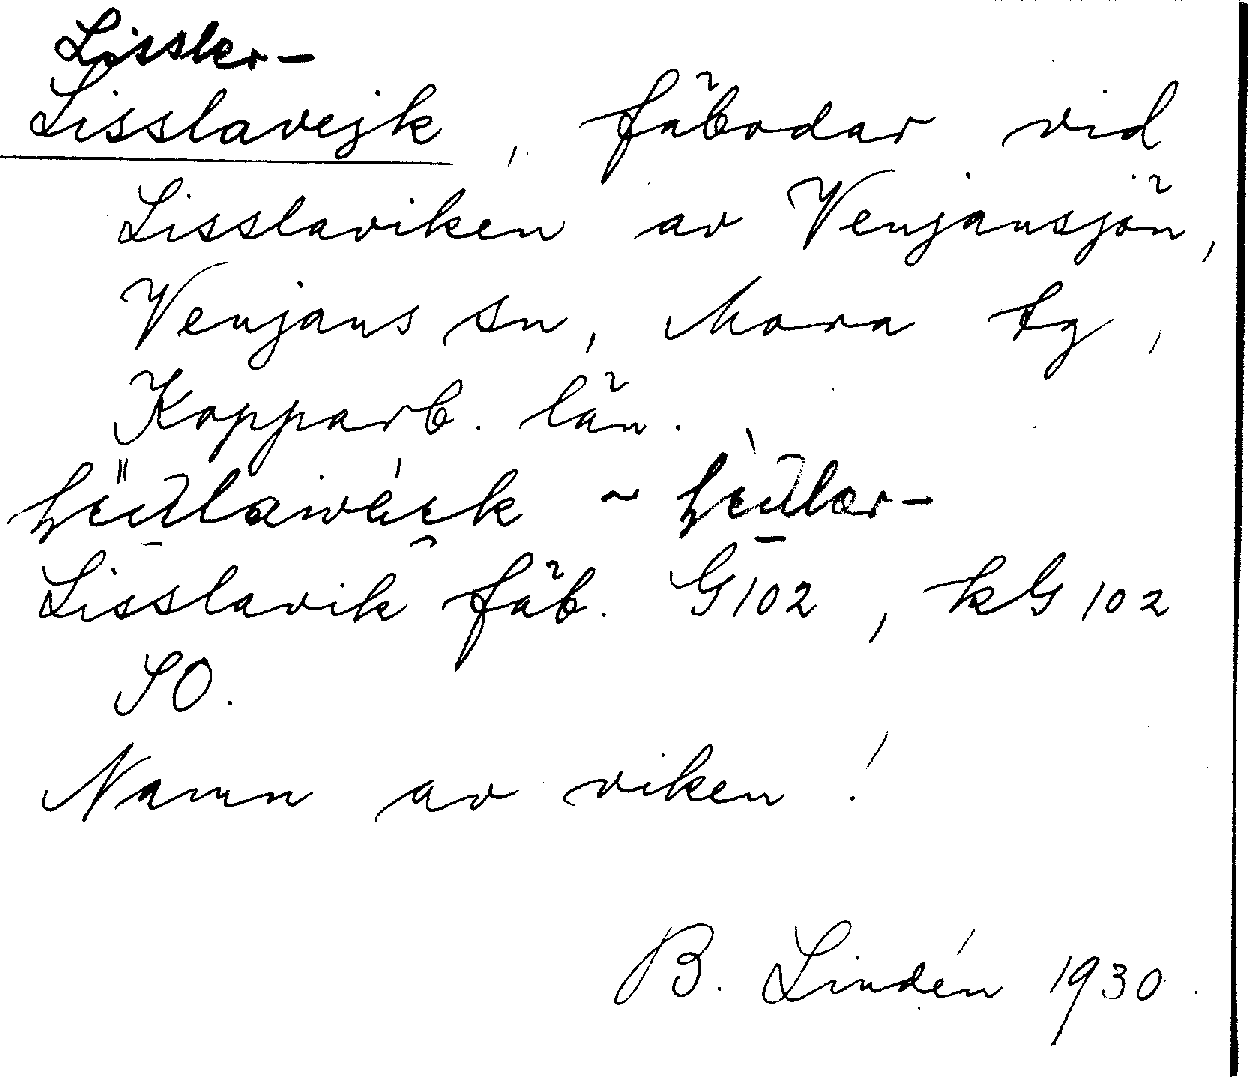 Lissler-
Lisslavejk, fäbodar vid
Lisslaviken av Venjansjön,
Venjans sn, Mora tg,
Kopparb. län.
Lisslavik fäb. G102, kG102
SO.
Namn av viken!
B. Lindén 1930.